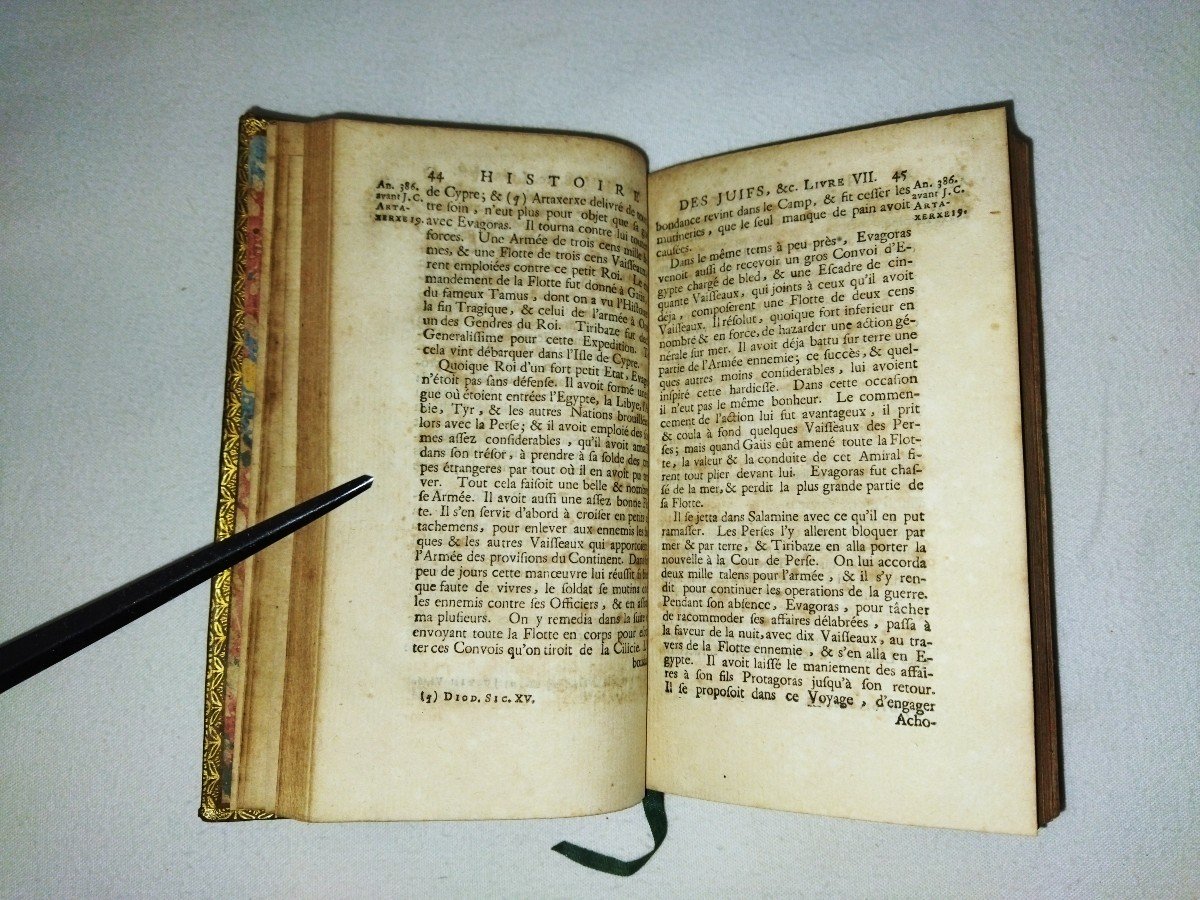 44 HISTOIRE
An. 386.
avant J. C.
ARTA-
XERXE 19.
de Cypre; & (q) Artaxerxe delivré de
tre soin, n'eut plus pour objet que sa
avec Evagoras. Il tourna contre lui
forces. Une Armée de trois cens mille
mes, & une Flotte de trois cens Vaisseaux
rent emploiées contre ce petit Roi. Le
mandement de la Flotte fut donné à Gaüs,
du fameux Tamus, dont on a vu l'Histoire
la fin Tragique, & celui de l'armée à
un des Gendres du Roi. Tiribaze fut
Generalissime pour cette Expedition.
cela vint débarquer dans l'Isle de Cypre.
Quoique Roi d'un fort petit Etat,
n'étoit pas sans défense. Il avoit formé une
gue où étoient entrées l'Egypte, la Libye,
bie, Tyr, & les autres Nations
lors avec la Perse; & il avoit emploié des
mes assez considerables, qu'il avoit
dans son trésor, à prendre à sa solde des
pes étrangeres par tout où il en avoit pu
ver. Tout cela faisoit une belle &
se Armée. Il avoit aussi une assez bonne
te. Il s'en servit d'abord à croiser en petits
tachemens, pour enlever aux ennemis les
ques & les autres Vaisseaux qui
l'Armée des provisions du Continent. Dans
peu de jours cette manœuvre lui réussit si
que faute de vivres, le soldat se mutina
les ennemis contre ses Officiers, & en
ma plusieurs. On y remedia dans la suite
envoyant toute la Flotte en corps pour
ter ces Convois qu'on tiroit de la Cilicie.
(q) DIOD. SIC. XV.
DES JUIFS, &c. LIVRE VII. 45
An. 386.
avant J. C.
ARTA-
XERXE 19.
bondance revint dans le Camp, & fit cesser les
mutineries, que le seul manque de pain avoit
causées.
Dans le même tems à peu près*, Evagoras
venoit aussi de recevoir un gros Convoi d'E-
gypte chargé de bled, & une Escadre de cin-
quante Vaisseaux, qui joints à ceux qu'il avoit
déja, composerent une Flotte de deux cens
Vaisseaux. Il résolut, quoique fort inferieur en
nombre & en force, de hazarder une action gé-
nérale sur mer. Il avoit déja battu sur terre une
partie de l'Armée ennemie; ce succès, & quel-
ques autres moins considerables, lui avoient
inspiré cette hardiesse. Dans cette occasion
il n'eut pas le même bonheur. Le commen-
cement de l'action lui fut avantageux, il prit
& coula à fond quelques Vaisseaux des Per-
ses; mais quand Gaüs eût amené toute la Flot-
te, la valeur & la conduite de cet Amiral fi-
rent tout plier devant lui. Evagoras fut chas-
sé de la mer, & perdit la plus grande partie de
sa Flotte.
Il se jetta dans Salamine avec ce qu'il en put
ramasser. Les Perses l'y allerent bloquer par
mer & par terre, & Tiribaze en alla porter la
nouvelle à la Cour de Perse. On lui accorda
deux mille talens pour l'armée, & il s'y ren-
dit pour continuer les operations de la guerre.
Pendant son absence, Evagoras, pour tâcher
de racommoder ses affaires délabrées, passa à
la faveur de la nuit, avec dix Vaisseaux, au tra-
vers de la Flotte ennemie, & s'en alla en E-
gypte. Il avoit laissé le maniement des affai-
res à son fils Protagoras jusqu'à son retour.
Il se proposoit dans ce Voyage, d'engager
Acho-